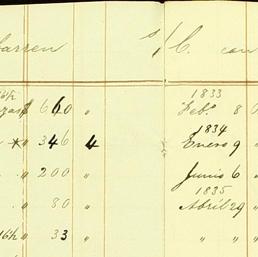 arren S/C. con
1833
$ 660 " Feb.º 8
1834
* " 346 4 Enero 9
" 200 " Junio 6
1835
" 80 " Abril 29
" 33 " " "